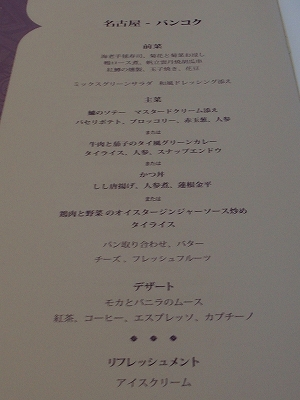 名古屋 - バンコク
前菜
海老手毬寿司、菊花と菊菜お浸し
鴨ロース煮、帆立雲丹焼胡瓜串
紅鱒の燻製、玉子焼き、花豆
ミックスグリーンサラダ 和風ドレッシング添え
主菜
鱸のソテー マスタードクリーム添え
パセリポテト、ブロッコリー、赤玉葱、人参
または
牛肉と茄子のタイ風グリーンカレー
タイライス、人参、スナップエンドウ
または
かつ丼
しし唐揚げ、人参煮、蓮根金平
または
鶏肉と野菜 のオイスタージンジャーソース炒め
タイライス
パン取り合わせ、バター
チーズ、フレッシュフルーツ
デザート
モカとバニラのムース
紅茶、コーヒー、エスプレッソ、カプチーノ
リフレッシュメント
アイスクリーム